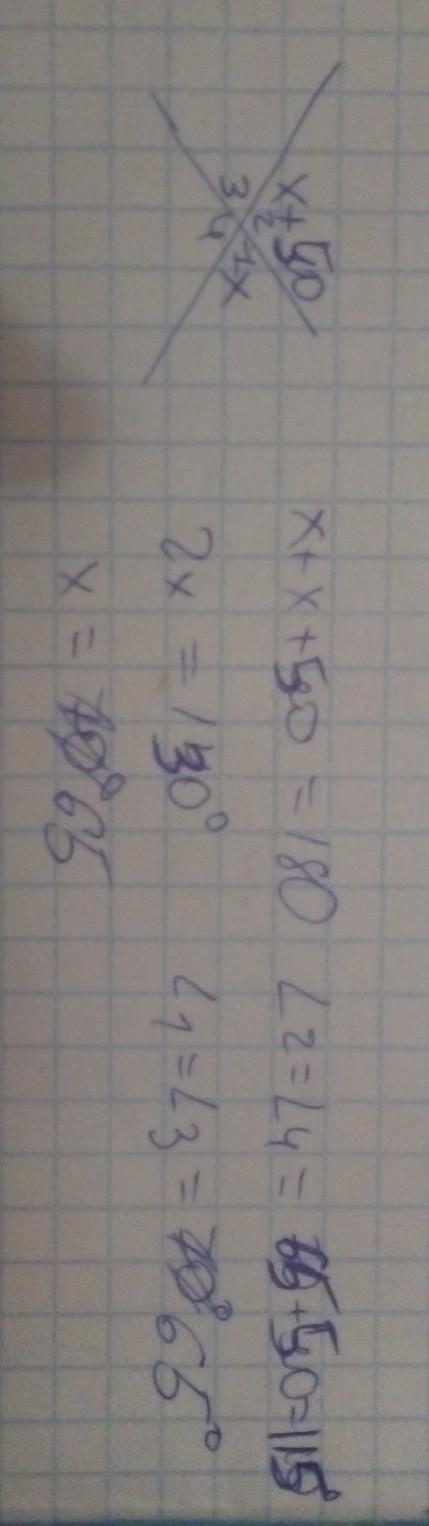 x+50
2
3 1x
4
x + x + 50 = 180 ∠2 = ∠4 = 65+50=115°
2x = 130° ∠1 = ∠3 = 65°
x = 65